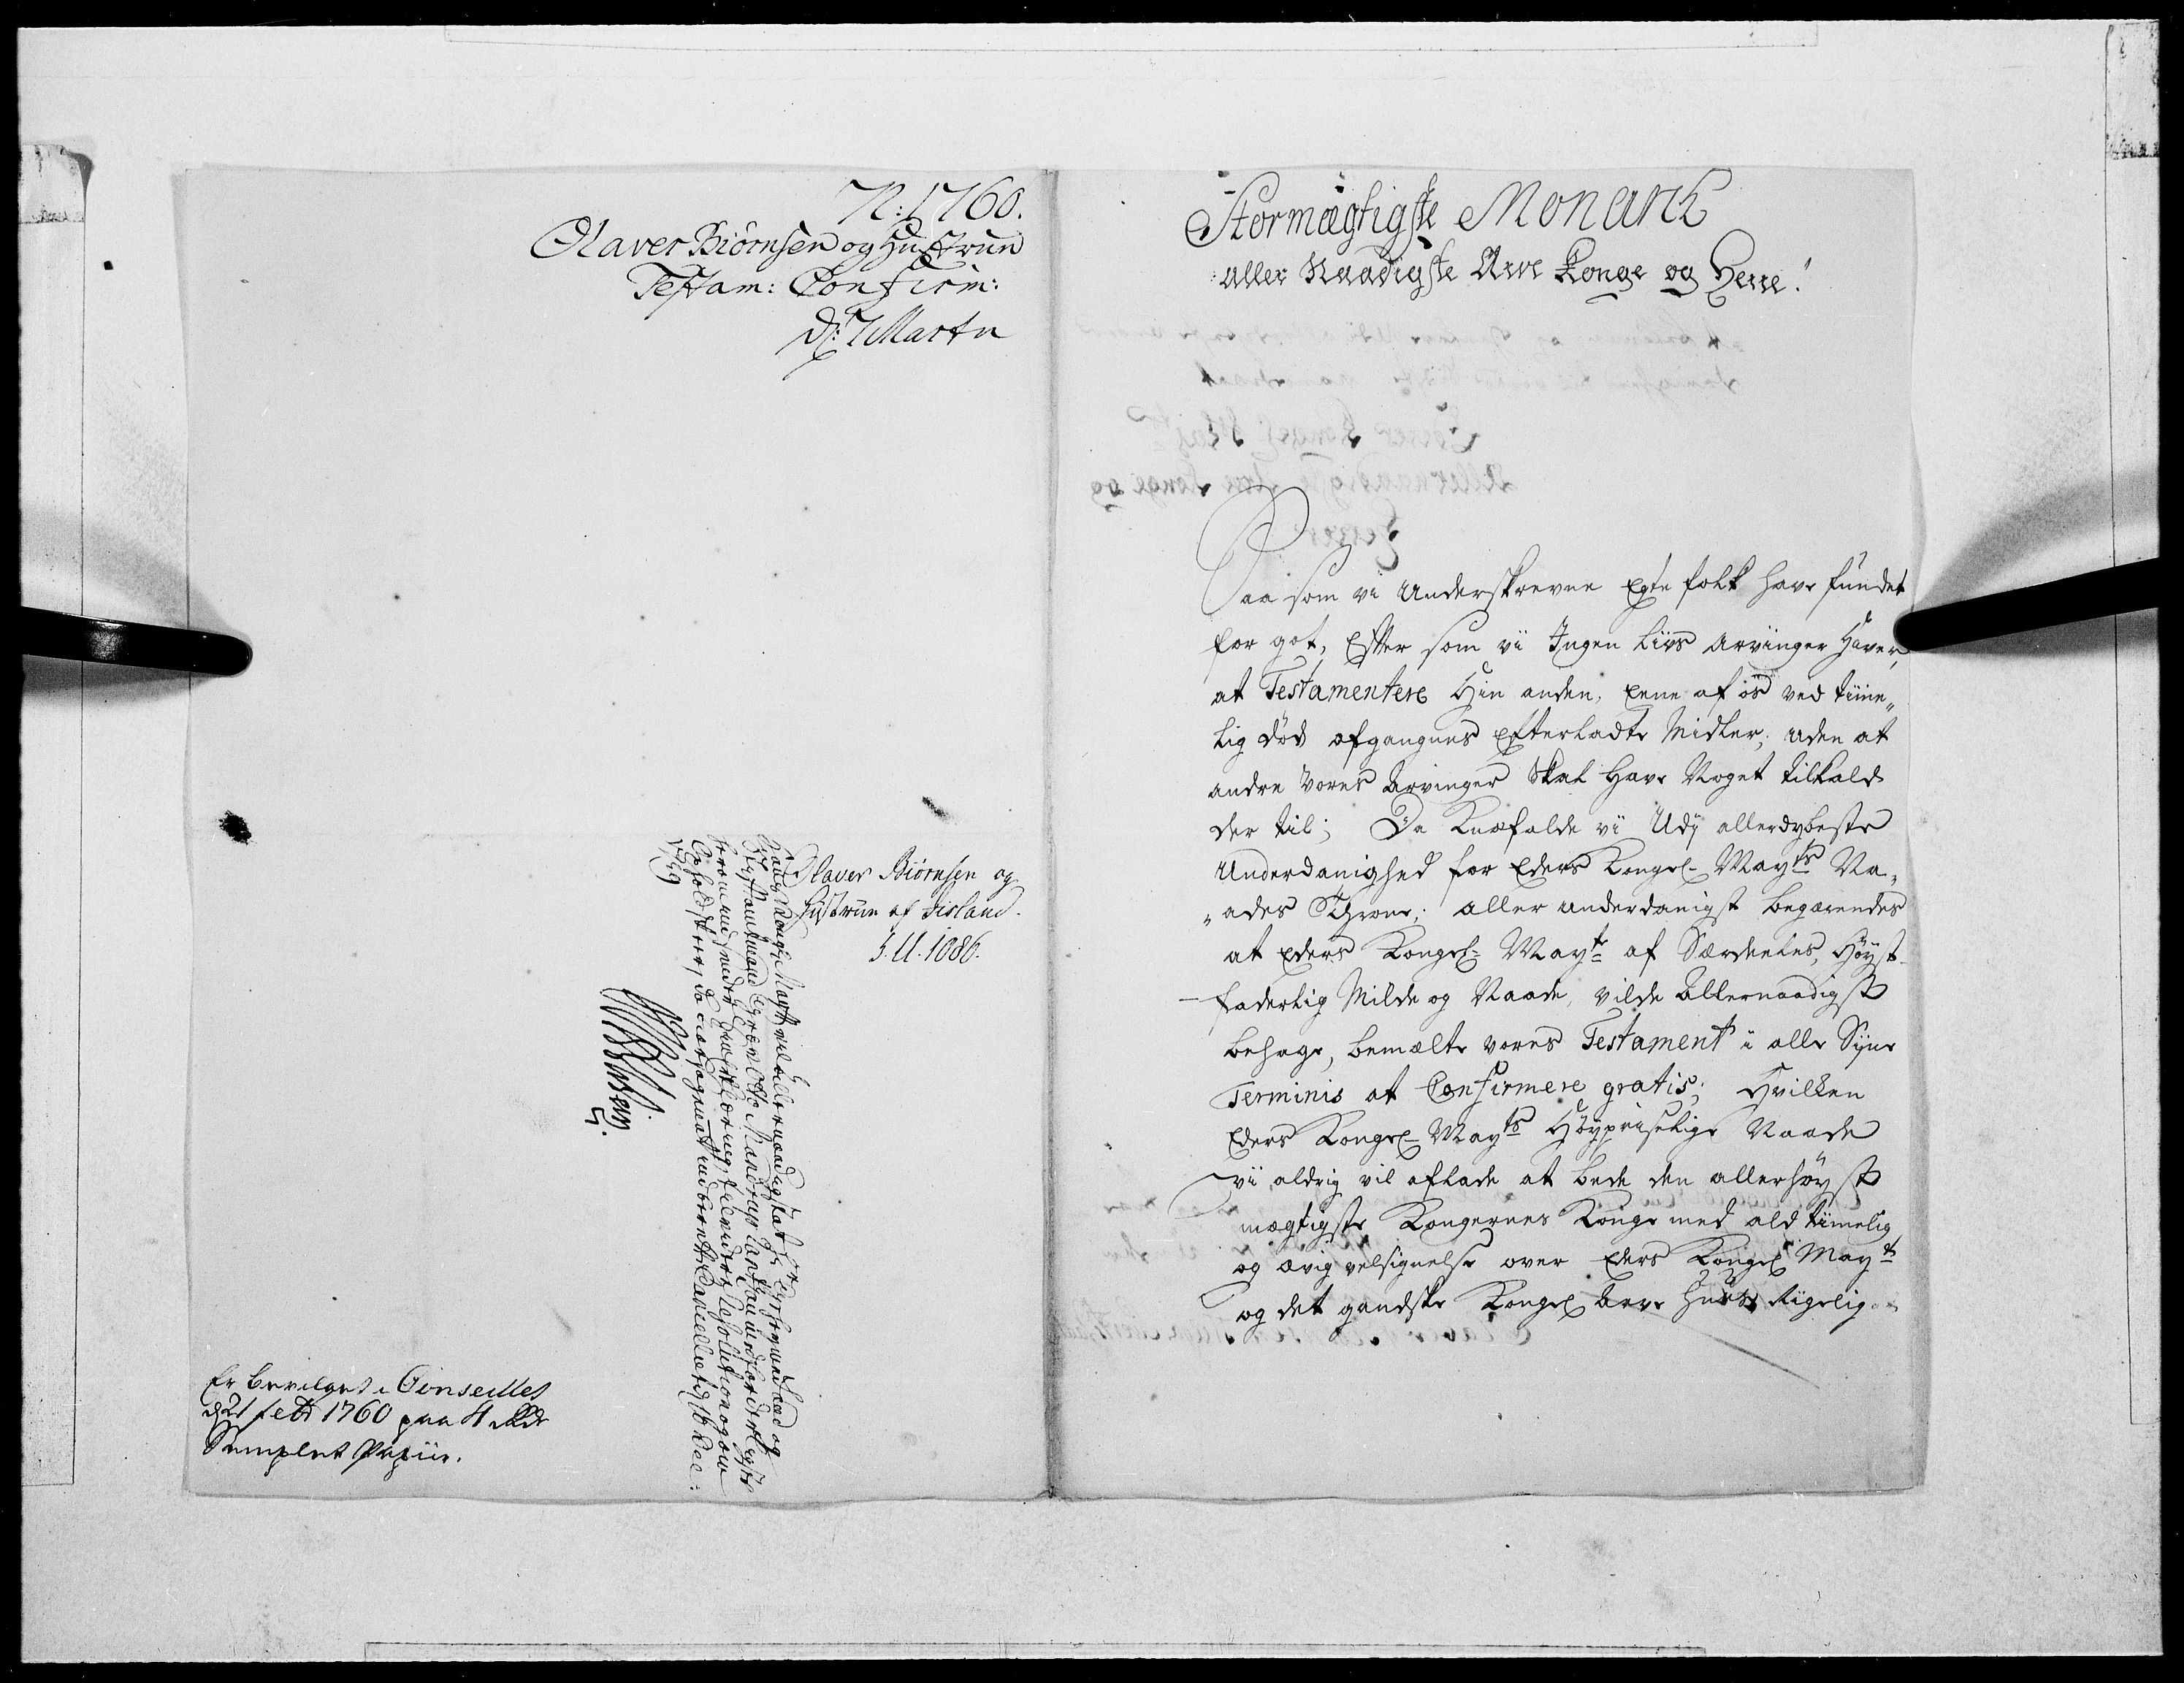 N: 1760.
Olaver Biörnsen og Hustrue
Testam: Confirm:
d: 7 Martii
Olaver Biörnsen og
Hustrue af Iisland.
J. U. 1086.
Hans Kongl: Mayts vil allernaadigst at Hr
Stiftamtmand
Resolution og om
Cancelliet d 16 Dec:
1759
Er bevilget i Conseillet
d 21 febr 1760 paa 4 rdlr
Stemplet Papiir.
Stormægtigste Monark
aller Naadigste Arve Konge og Herre!
Saa som vi Underskrevne Egte folk have fundet
for got, Efter som vi Ingen Livs Arvinger Haver,
at Testamentere Hin anden, Eene af os ved tiime„
lig död afgangnes efterladte Midler; uden at
andre Vores Arvinger Skal Have Noget tilkald
der til; Da Knæfalde vi Udj allerdybeste
Underdanighed for Eders Kongel- Mayts Na„
„ades Throne; aller underdanigst begærendes
at Eders Kongel- Mayt af Særdeeles, Höyst-
faderlig Milde og Naade, vilde Allernaadigst
behage, bemælte vores Testament i alle Sijne
Terminis at Confirmere gratis; Hvilken
Eders Kongel- Mayts Höypriselige Naade
vi aldrig vil aflade at bede den allerhöyst
mægtigste Kongernes Konge med ald tiimelig
og ævig velsignelse over Eders Kongel Mayt
og det gandske Kongel Arve Huus Rigelig